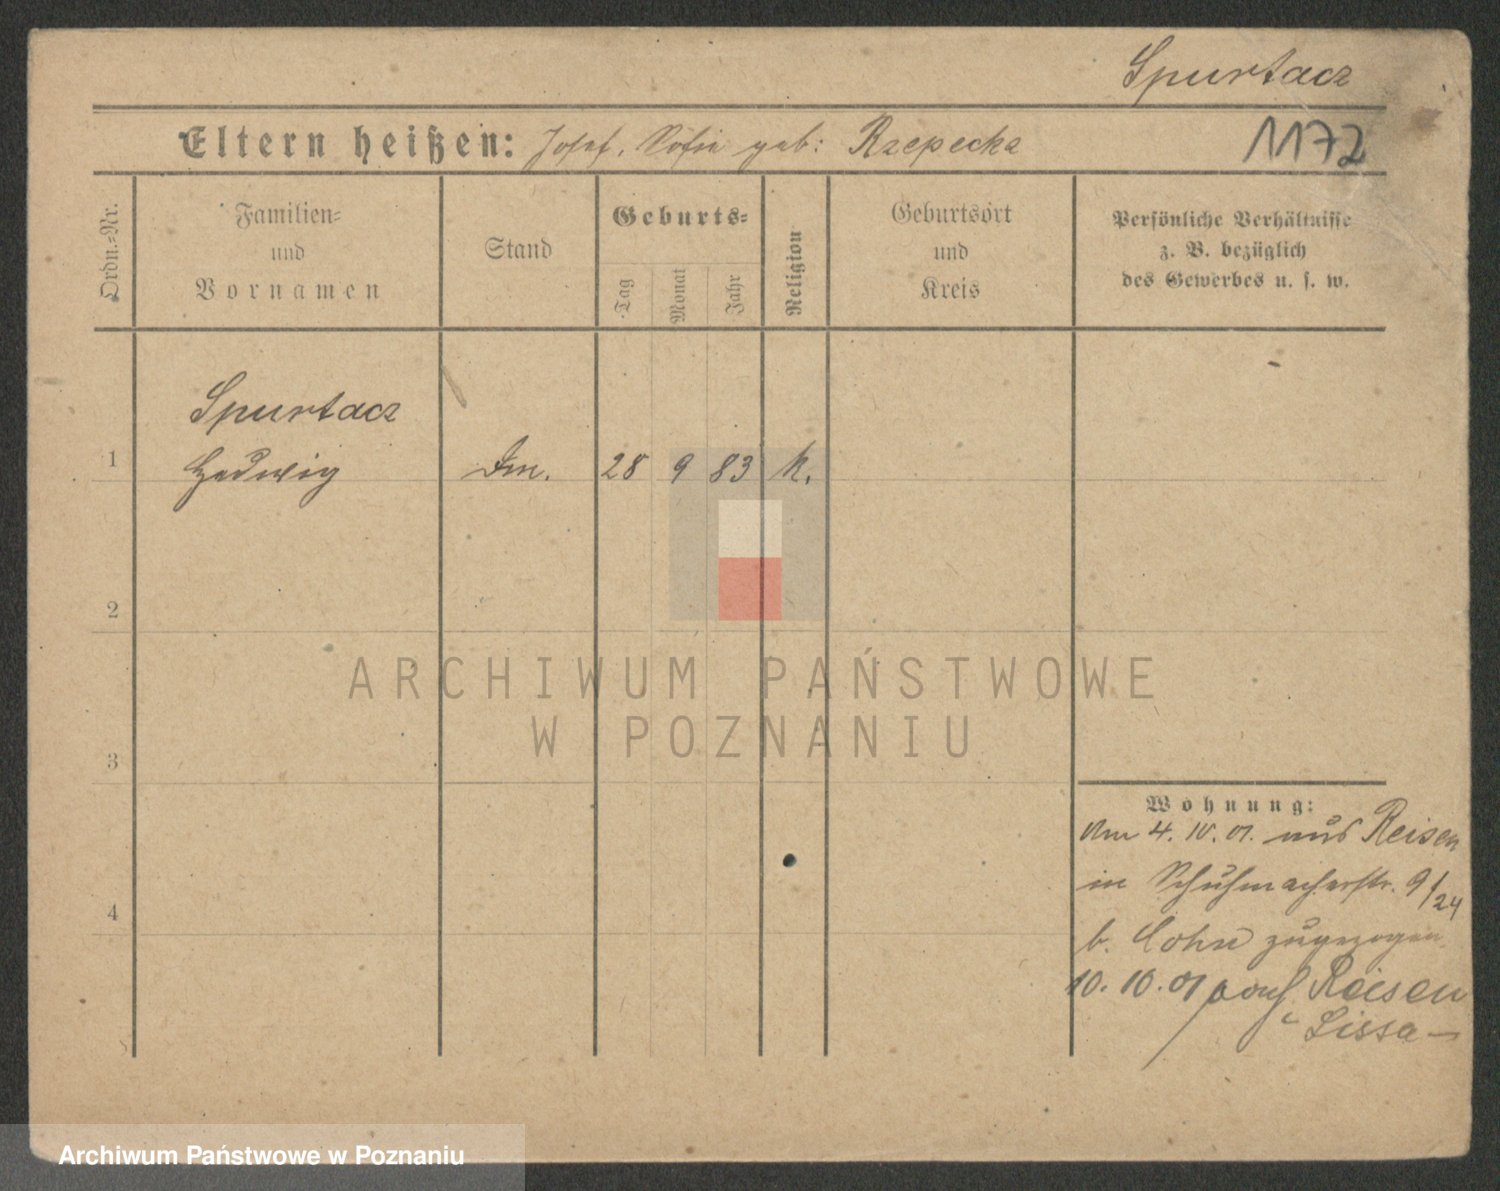 Spurtacz
Eltern heißen: Josef, Sofie geb: Rzepecka
1172
Ordn.=Nr.
Familien=
und
Vornamen
Stand
Geburts=
Tag
Monat
Jahr
Religion
Geburtsort
und
Kreis
Persönliche Verhältnisse
z. B. bezüglich
des Gewerbes u. s. w.
Spurtacz
1 Hedwig 28 9 83 k.
2
ARCHIWUM PAŃSTWOWE
W POZNANIU
3
Wohnung:
Am 4. 10. 01. aus Reisen
in Schuhmacherstr. 9/24
4
b. Cohn zugezogen
10. 10. 01 auf Reisen
Lissa
Archiwum Państwowe w Poznaniu